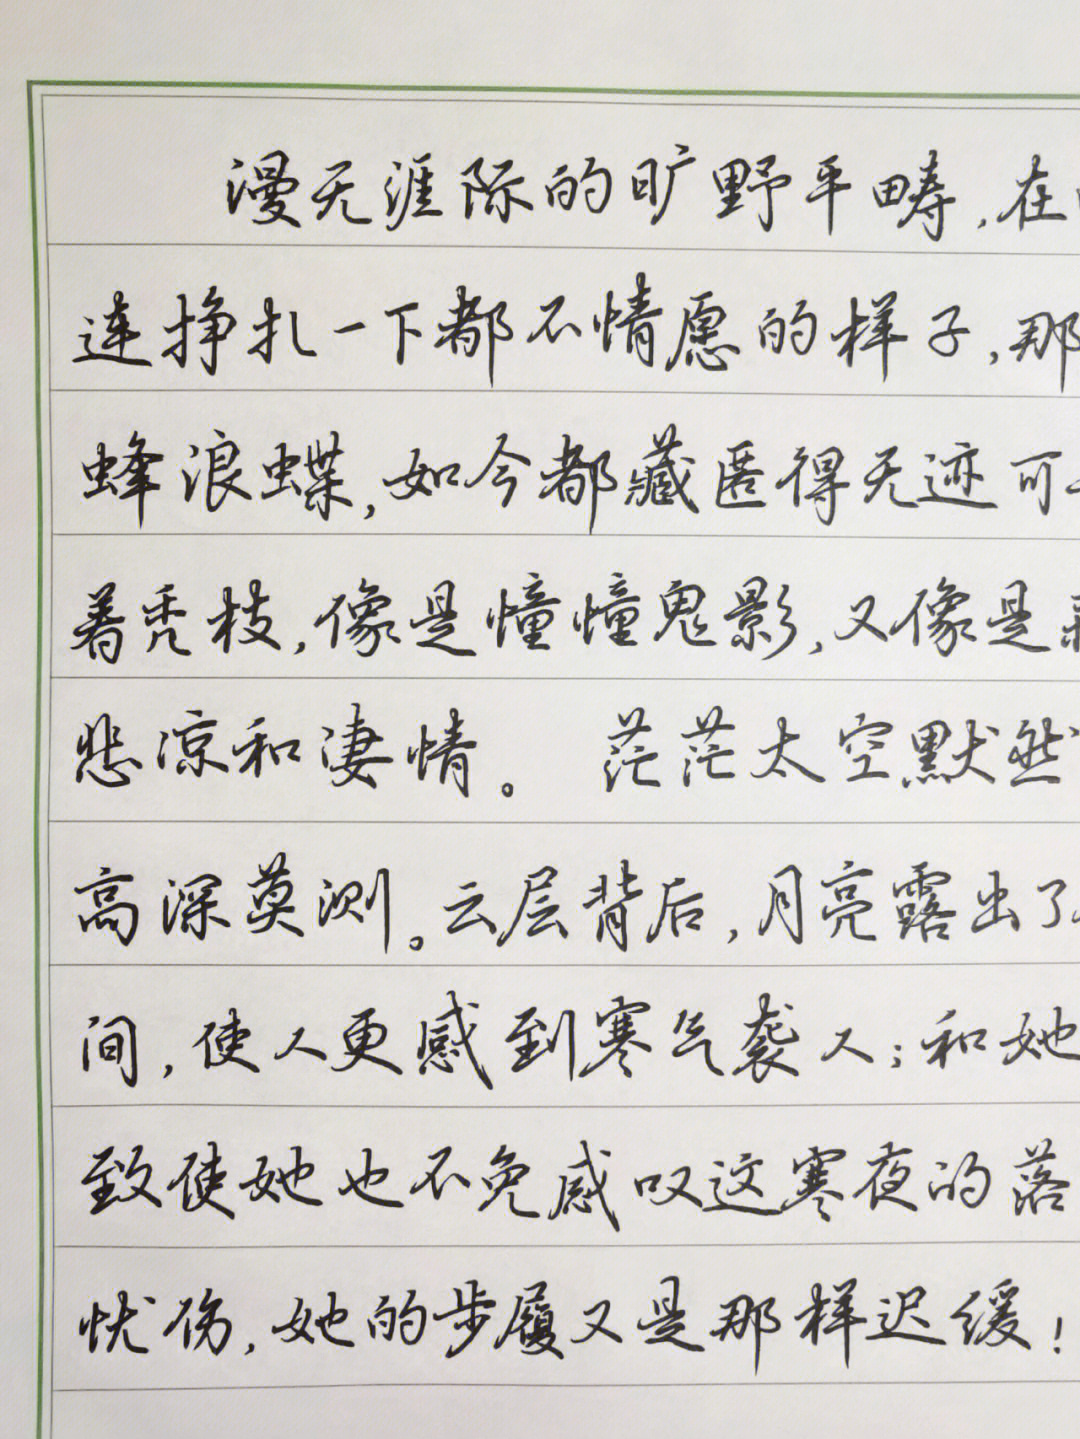 漫无涯际的旷野平畴,在
连挣扎一下都不情愿的样子,那
蜂浪蝶,如今都藏匿得无迹可
着秃枝,像是憧憧鬼影,又像是
悲凉和凄情。 茫茫太空默然
高深莫测。云层背后,月亮露出了
间,使人更感到寒气袭人;和她
致使她也不免感叹这寒夜的落
忧伤,她的步履又是那样迟缓!